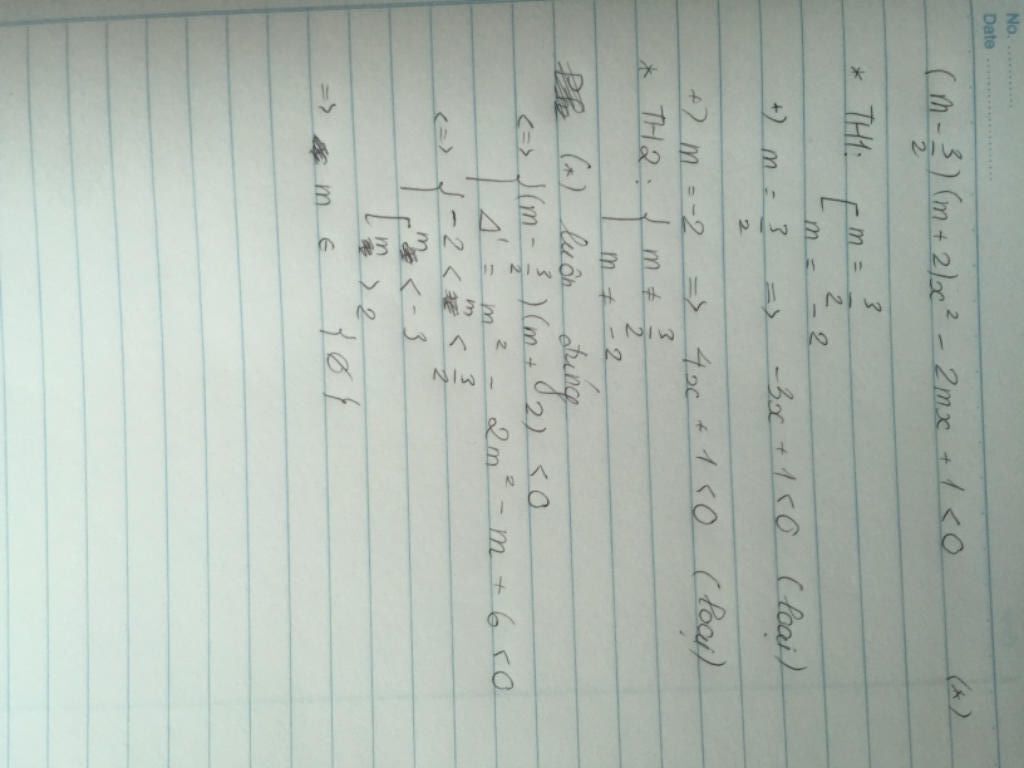 No. ...............
Date ...............
(m - 3/2)(m + 2)x² - 2mx + 1 < 0 (*)
* TH1: [ m = 3/2
m = -2
+) m = 3/2 => -3x + 1 < 0 (loại)
+) m = -2 => 4x + 1 < 0 (loại)
* TH2: { m ≠ 3/2
m ≠ -2
(*) luôn đúng
<=> { (m - 3/2)(m + 2) < 0
Δ' = m² - 2m² - m + 6 < 0
<=> { -2 < m < 3/2
[ m < -3
m > 2
=> m ∈ {∅}